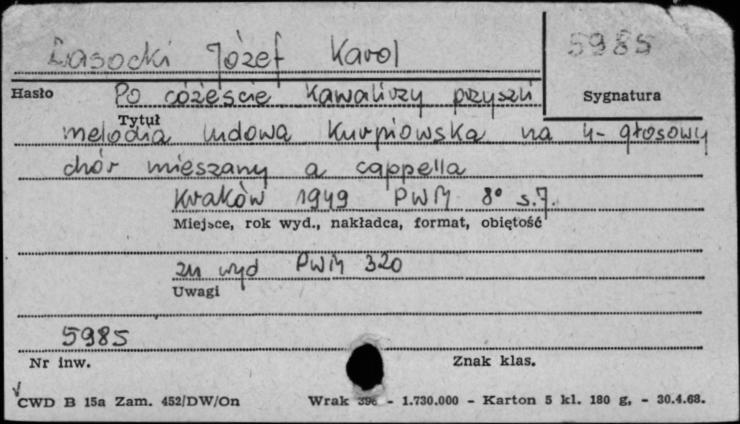 Lasocki Józef Karol
5985
Hasło
Sygnatura
Po cóżeście kawalirzy przyszli
Tytuł
melodia ludowa kurpiowska na 4-głosowy
chór mieszany a cappella
Kraków 1949 PWM 8° s.7.
Miejsce, rok wyd., nakładca, format, obiętość
zn wyd PWM 320
Uwagi
5985
Nr inw.
Znak klas.
CWD B 15a Zam. 452/DW/On
Wrak 396 - 1.730.000 - Karton 5 kl. 180 g, - 30.4.68.